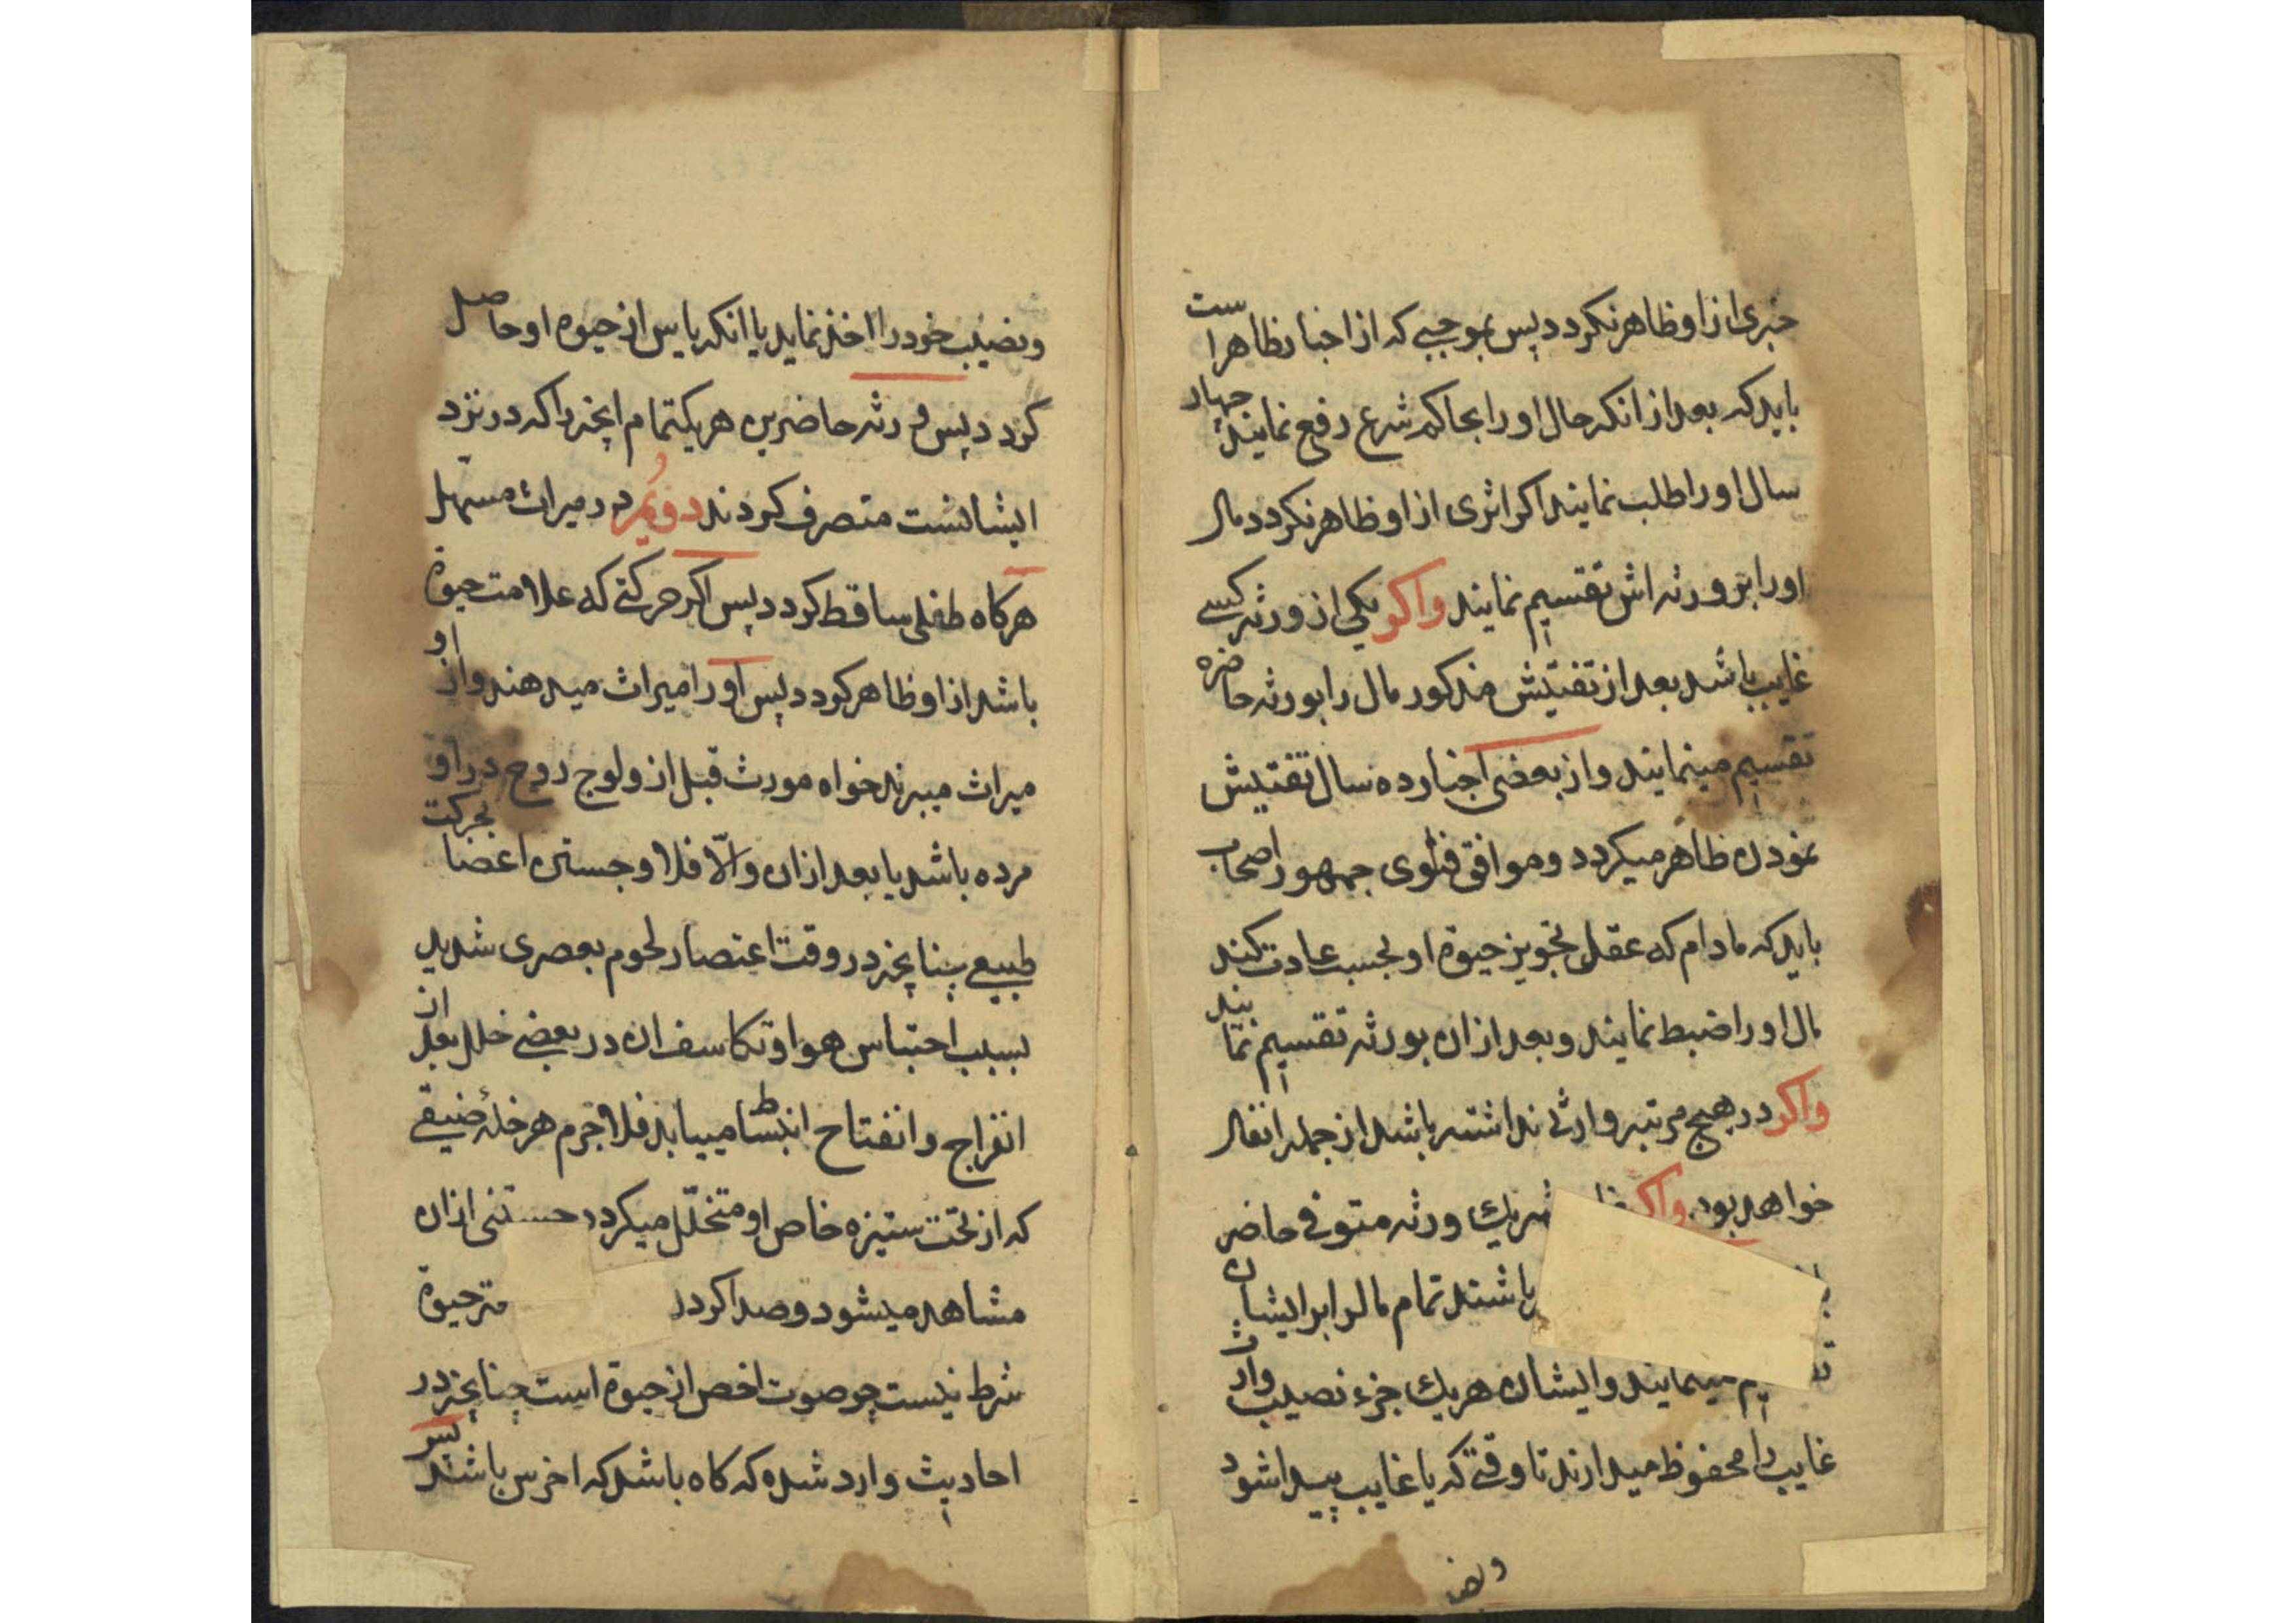 خبری از او ظاهر نکردد پس بموجبی که از اخبار ظاهر است
باید که بعد از انکه حال او را بحاکم شرع رفع نمایند چهار
سال او را طلب نمایند اکر اثری از او ظاهر نکردد مال
او را بر ورثه اش تقسیم نمایند واکر یکی از ورثه کسی
غایب باشد بعد از تفتیش مذکور مال را بورثه حاضره
تقسیم مینمایند و از بعضی اخبار ده سال تفتیش
نمودن ظاهر میکردد و موافق فتوی جمهور اصحاب
باید که مادام که عقل تجویز حیوة او بحسب عادت کند
مال او را ضبط نمایند و بعد از ان بورثه تقسیم نمایند
واکر در هیچ مرتبه وارثی نداشته باشد از جمله انفال
خواهد بود واکر شریك ورثه متوفی حاضر
باشند تمام مال را بر ایشان
مینمایند و ایشان هریك جزء نصیب وارث
غایب را محفوظ میدارند تا وقتی که یا غایب پیدا شود
و نصیب
و نصیب خود را اخذ نماید یا انکه یاس از حیوه او حاصل
کردد پس ورثه حاضرین هریك تمام انچه را که در نزد
ایشانست متصرف کردند دویم در میراث مستهل
هرکاه طفلی ساقط کردد پس اکر حرکتی که علامت حیوة
باشد از او ظاهر کردد پس او را میراث میدهند و از او
میراث میبرند خواه مورث قبل از ولوج روح در او
مرده باشد یا بعد از ان والّا فلا و جستن اعضا بحرکت
طبیعی چنانچه در وقت اعتصار لحوم بعصری شدید
بسبب احتباس هوا و تکاسف ان در بعضی خلل بعد از
انفراج و انفتاح انبساط مییابد فلاجرم هر خلهٔ ضیقی
که از تحت ستیزه خاص او متخلّل میکردد جستنی ازان
مشاهد میشود و صدا کردن حیوة
شرط نیست چو صوت اخص از حیوة است چنانچه در
احادیث وارد شده که کاه باشد که اخرس باشد پس